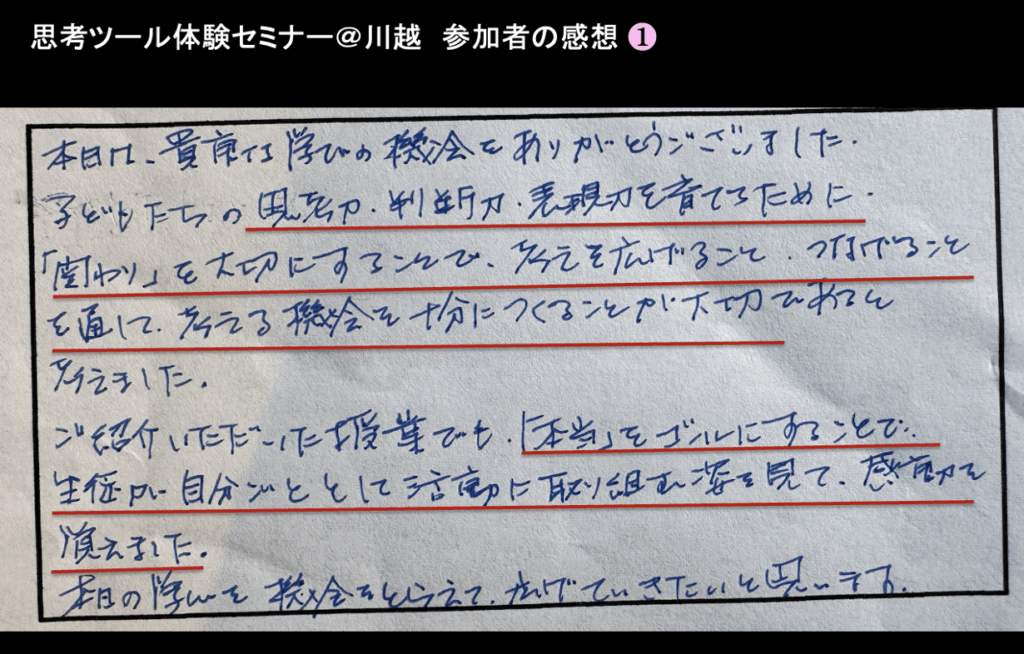 思考ツール体験セミナー@川越 参加者の感想 ❶
本日は、貴重な学びの機会をありがとうございました。
子どもたちの思考力・判断力・表現力を育てるために、
「関わり」を大切にすることで、考えを広げること、つなげること
を通して、考える機会を十分につくることが大切であると
考えました。
ご紹介いただいた授業でも、「本当」をゴールにすることで、
生徒が自分ごととして活動に取り組む姿を見て、感動を
覚えました。
本日の学びを機会をとらえて、広げていきたいと思います。